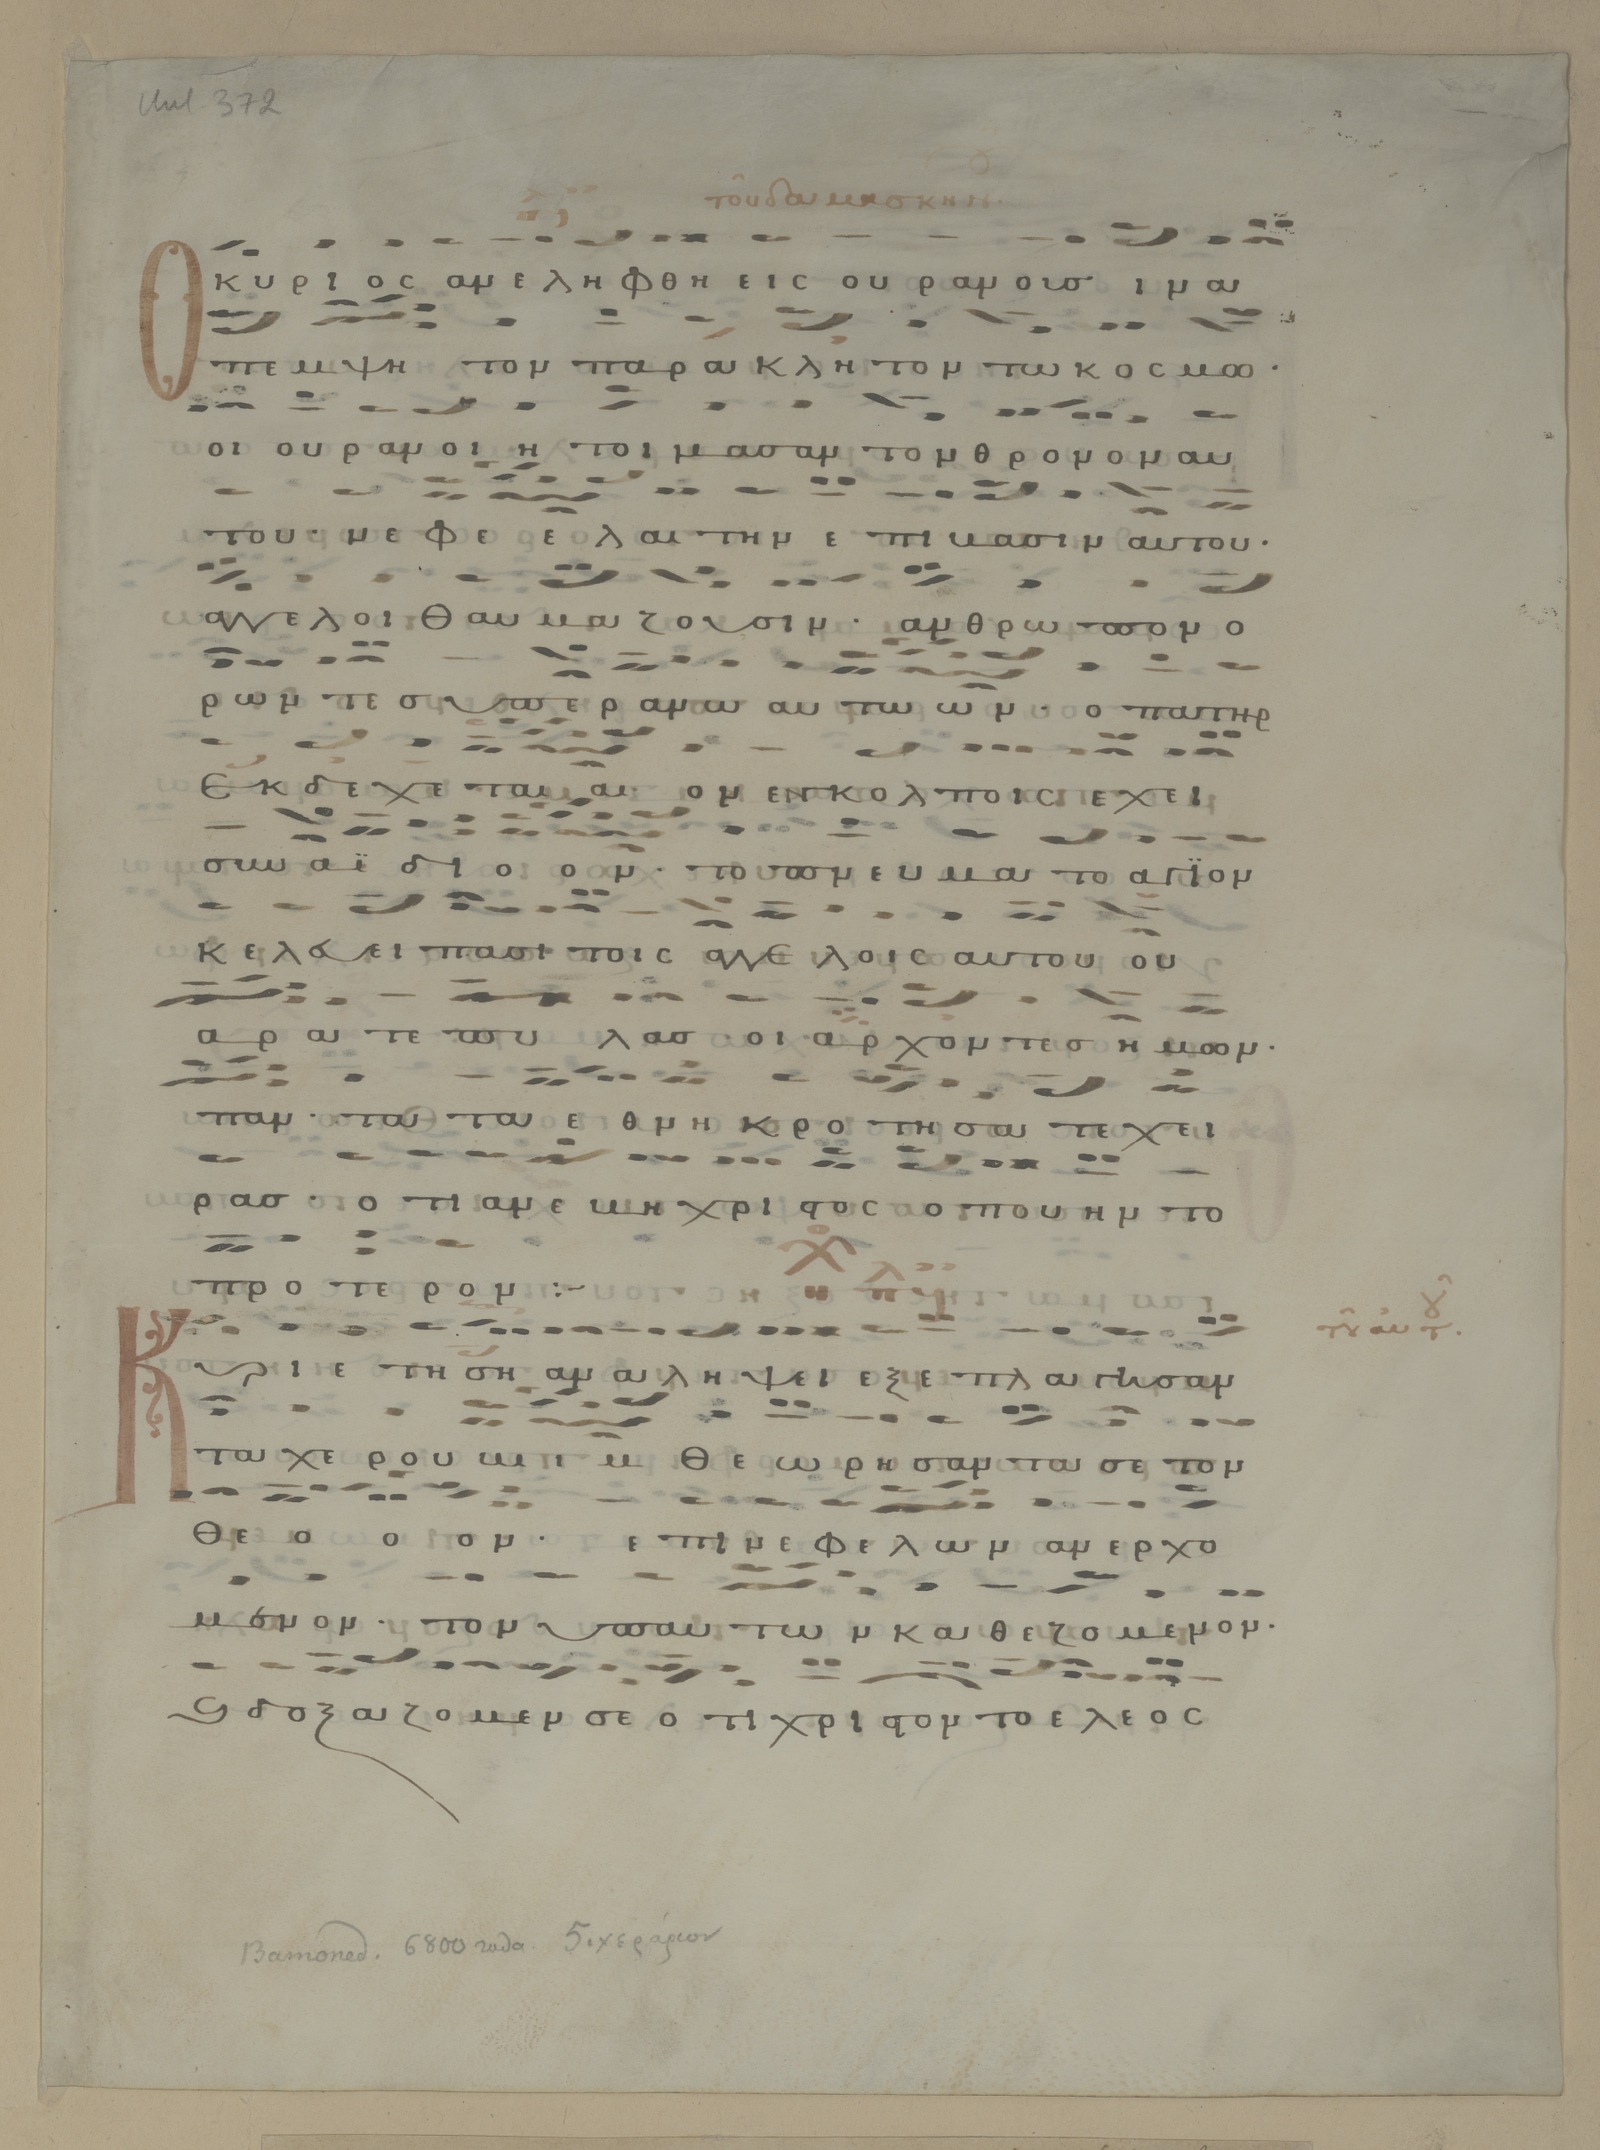 372
του δαμασκην
Ο κυριος ανεληφθη εις ουρανουσ ινα
πεμψη τον παρακλητον τω κοσμω·
οι ουρανοι η τοιμασαν τον θρονον αυ
του· νεφε ε λαι την ε πιβασιν αυτου·
αγγελοι θαυμαζουσιν· ανθρωπον ο
ρων τες υπερανω αυ τω ων· ο πατηρ
εκδεχεται αι ον εν κολποις εχει
συναϊδι ο ον· το πνευμα το αγϊον
κελευει πασι τοις αγγελοις αυτου ου
α ρα τε πυ λασ οι αρχοντεσ ημων·
παν· τα τα ε θνη κροτησατε χει
ρασ· ο τι ανεβη χριστος οπου ην το
προτερον :~
Κυριε τη ση αναληψει εξεπλαγησαν
τα χερουβιμ θεωρησαντα σε τον
θε ο ο ον· επι νεφελων ανερχο
μενον· τον υπ αυτων καθεζομενον·
ϗ δοξαζομεν σε οτι χριστον το ελεος
6800 στιχεράριον